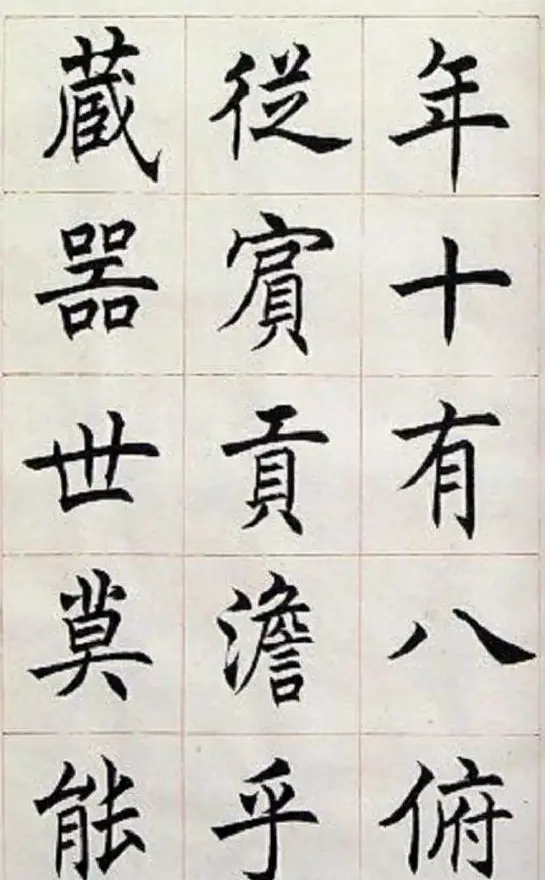 年十有八俯
從賔貢澹乎
蔵器世莫能